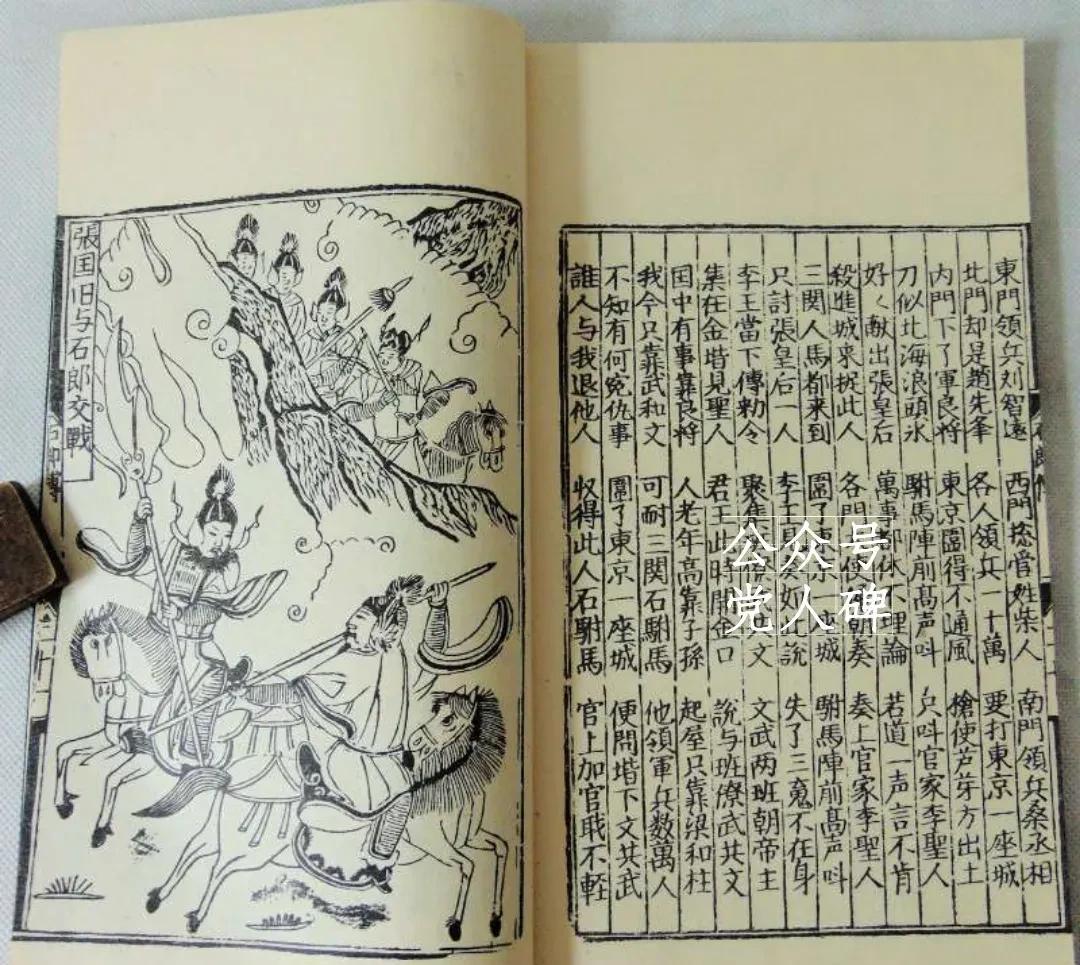 東門領兵刘智遠 西門捴管姓柴人 南門領兵桑丞相
北門却是趙先 各人領兵一十萬 要打東京一座城
内門下了軍良將 東京圍得不通風 槍使芦芽方出土
刀似北海浪頭水 駙馬陣前髙声叫 只叫官家李聖人
好〻献出張皇后 萬事都休不理論 若道一声言不肯
殺進城来捉此人 各門 便 朝奏 奏上官家李聖人
三関人馬都来到 圍了東京一座城 駙馬陣前髙声叫
只討張皇后一人 李王見奏如此說 失了三䰟不在身
李王當下傳勅令 聚集 文 文武两班朝帝主
集在金堦見聖人 君王此時開金口 說与班僚武共文
国中有事靠良將 人老年高靠子孫 起屋只靠梁和柱
我今只靠武和文 可耐三関石駙馬 他領軍兵数萬人
不知有何寃仇事 圍了東京一座城 便問堦下文共武
誰人与我退他人 収得此人石駙馬 官上加官耺不輕
張国旧与石郎交戰
石郎傳
公众号
党人碑